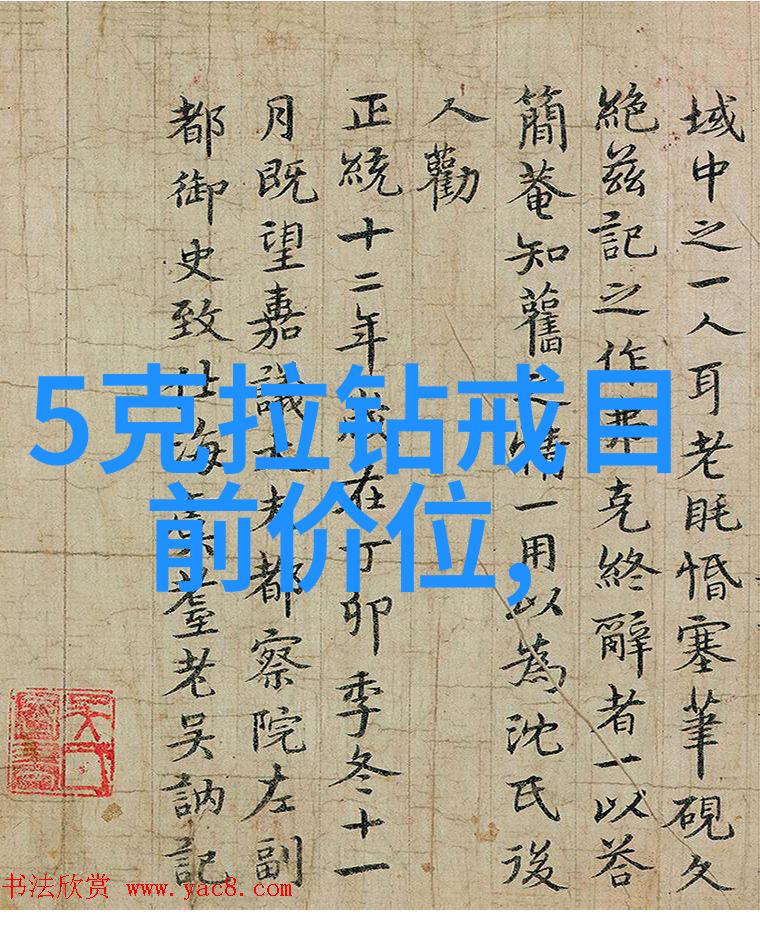 域中之一人耳老眊惛塞筆硯久
絕茲記之作弗克終辭者一以荅
簡菴知舊之情一用以為沈氏後
人勸
正統十二年歲在丁卯季冬十一
月既望嘉議大夫都察院左副
都御史致仕海虞耋老吳訥記
5克拉钻戒目
前价位,
书法欣赏 www.yac8.com